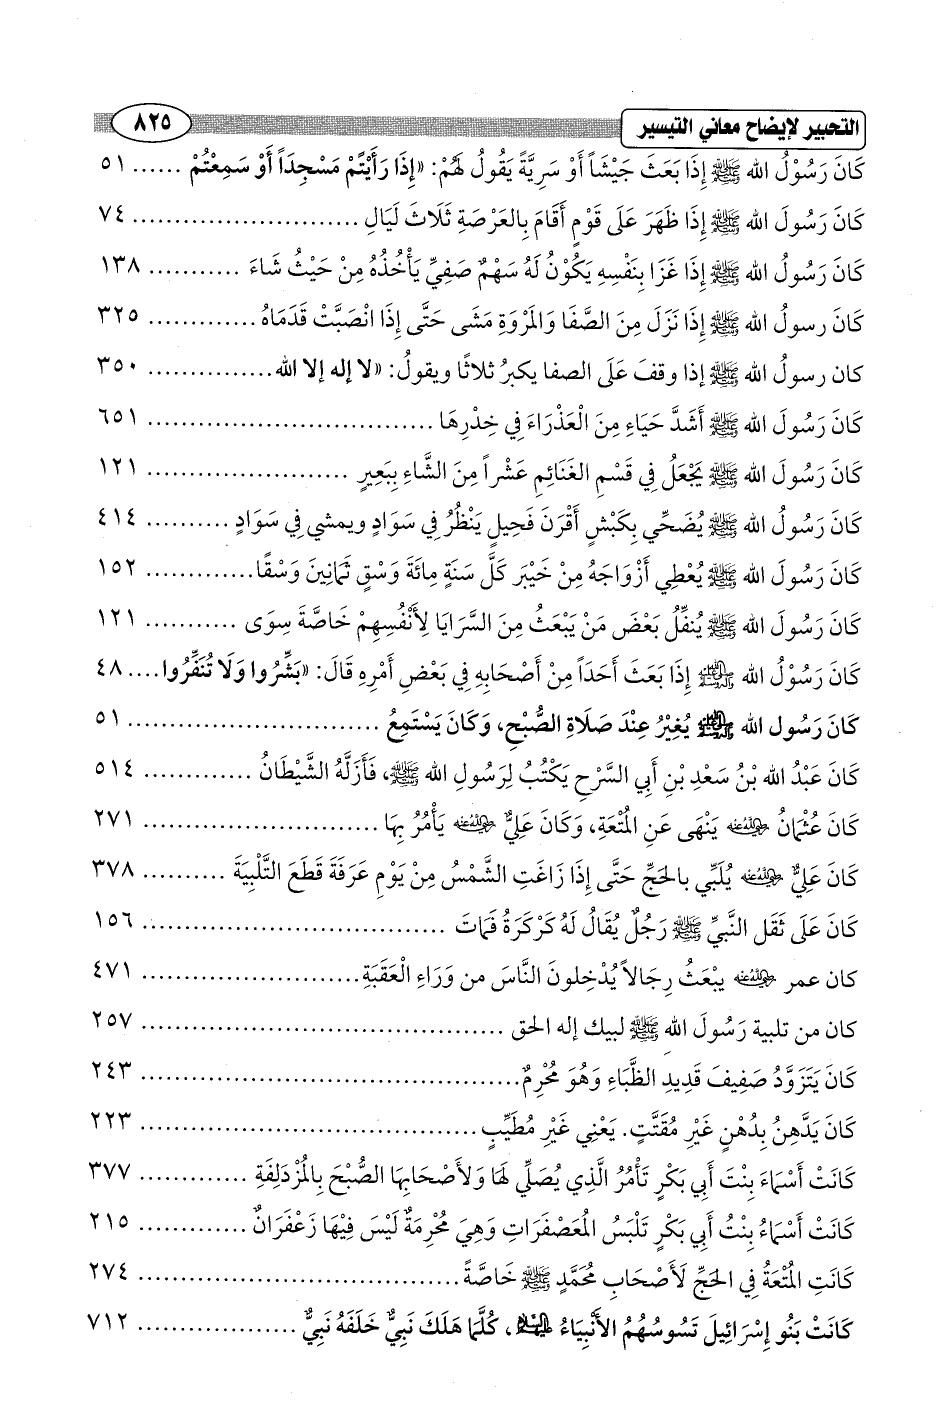 التحبير لإيضاح معاني التيسير ٨٢٥
كَانَ رَسُوْلُ الله ﷺ إِذَا بَعَثَ جَيْشَاً أَوْ سَرِيَّةً يَقُولُ لَهُمْ: «إِذَا رَأَيْتُمْ مَسْجِدَاً أَوْ سَمِعْتُمْ ...... ٥١
كَانَ رَسُولَ الله ﷺ إِذَا ظَهَرَ عَلَى قَوْمٍ أَقَامَ بِالعَرْصَةِ ثَلَاثَ لَيَالٍ ............................ ٧٤
كَانَ رَسُولَ الله ﷺ إِذَا غَزَا بِنَفْسِهِ يَكُوْنُ لَهُ سَهْمٌ صَفِيٍّ يَأْخُذُهُ مِنْ حَيْثُ شَاءَ ........... ١٣٨
كَانَ رسولُ الله ﷺ إِذَا نَزَلَ مِنَ الصَّفَا وَالمَرْوَةِ مَشَى حَتَّى إِذَا انْصَبَّتْ قَدَمَاهُ ............. ٣٢٥
كان رسولُ الله ﷺ إذا وقفَ عَلَى الصفا يكبرُ ثلاثًا ويقولُ: «لا إله إلا الله............... ٣٥٠
كَانَ رَسُولَ الله ﷺ أَشَدَّ حَيَاءِ مِنَ العَذْرَاءَ فِي خِدْرِهَا .................................. ٦٥١
كَانَ رَسُولَ الله ﷺ يَجْعَلُ فِي قَسْمِ الغَنَائِمِ عَشْراً مِنَ الشَّاءِ بِبَعِيرٍ ........................ ١٢١
كَانَ رَسُولُ الله ﷺ يُضَحِّي بِكَبْشٍ أَقْرَنَ فَحِيلٍ يَنْظُرُ فِي سَوَادٍ ويمشي فِي سَوَادٍ .......... ٤١٤
كَانَ رَسُولَ الله ﷺ يُعْطِي أَزْوَاجَهُ مِنْ خَيْبَرَ كَلَّ سَنَةٍ مِائَةَ وَسْقٍ ثَمَانِينَ وَسْقًا............. ١٥٢
كَانَ رَسُولَ الله ﷺ يُنَفِّلُ بَعْضَ مَنْ يَبْعَثُ مِنَ السَّرَايَا لِأَنْفُسِهِمْ خَاصَّةَ سِوَى ........... ١٢١
كَانَ رَسُوْلُ الله ﷺ إِذَا بَعَثَ أَحَدَاً مِنْ أَصْحَابِهِ فِي بَعْضِ أَمْرِهِ قَالَ: «بَشِّرُوا وَلَا تُنَفِّرُوا.... ٤٨
كَانَ رَسُول الله ﷺ يُغِيْرُ عِنْدَ صَلَاةِ الصُّبْحِ، وَكَانَ يَسْتَمِعُ ............................ ٥١
كَانَ عَبْدُ الله بْنُ سَعْدِ بْنِ أَبي السَّرْحِ يَكْتُبُ لِرَسُولِ الله ﷺ، فَأَزَلَّهُ الشَّيْطَانُ ............ ٥١٤
كَانَ عُثْمَانُ رضي الله عنه يَنْهَى عَنِ المُتْعَةِ، وَكَانَ عَلِيٌّ رضي الله عنه يَأْمُرُ بِهَا .......................... ٢٧١
كَانَ عَلِيٌّ رضي الله عنه يُلَبِّي بالحَجِّ حَتَّى إِذَا زَاغَتِ الشَّمْسُ مِنْ يَوْمِ عَرَفَةَ قَطَعَ التَّلْبِيَةَ .......... ٣٧٨
كَانَ عَلَى ثَقَلِ النَّبِيِّ ﷺ رَجُلٌ يُقَالُ لَهُ كَرْكَرَةُ فَمَاتَ .................................. ١٥٦
كان عمر رضي الله عنه يبْعَثُ رِجَالاً يُدْخِلونَ النَّاسَ من وَرَاءِ الْعَقَبَةِ............................ ٤٧١
كان من تلبية رَسُولَ الله ﷺ لبيك إله الحق ........................................ ٢٥٧
كَانَ يَتَزَوَّدُ صَفِيفَ قَدِيدِ الظِّبَاءِ وَهُوَ مُحْرِمٌ.......................................... ٢٤٣
كَانَ يَدَّهِنُ بِدُهْنٍ غَيْرِ مُقَتَّتٍ. يَعْنِي غَيْرِ مُطَيِّبٍ...................................... ٢٢٣
كَانَتْ أَسْمَاءَ بِنْتَ أَبِي بَكْرٍ تَأْمُرُ الَّذِي يُصَلِّي لَهَا وَلأَصْحَابِهَا الصُّبْحَ بِالمُزْدَلِفَةِ ............ ٣٧٧
كَانَتْ أَسْمَاءُ بِنْتُ أَبِي بَكْرٍ تَلْبَسُ المُعَصْفَرَاتِ وَهِيَ مُحْرِمَةٌ لَيْسَ فِيْهَا زَعْفَرَانٌ ............ ٢١٥
كَانَتِ المُتْعَةُ فِي الحَجِّ لَأَصْحَابِ مُحَمَّدٍ ﷺ خَاصَّةً.................................. ٢٧٤
كَانَتْ بَنُو إِسْرَائِيلَ تَسُوسُهُمُ الأَنْبِيَاءُ عليهم السلام، كُلَّمَا هَلَكَ نَبِيٌّ خَلَفَهُ نَبِيٌّ ................. ٧١٢